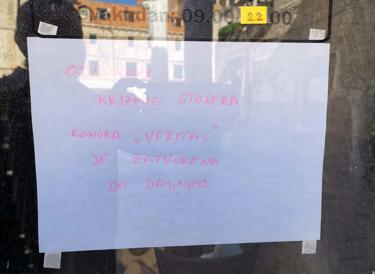 Svakidan, 09.00 22 00
KRIZNOG STOŽERA
KONOBA „VERITAS"
JE ZATVORENA
DO DALJNJEG